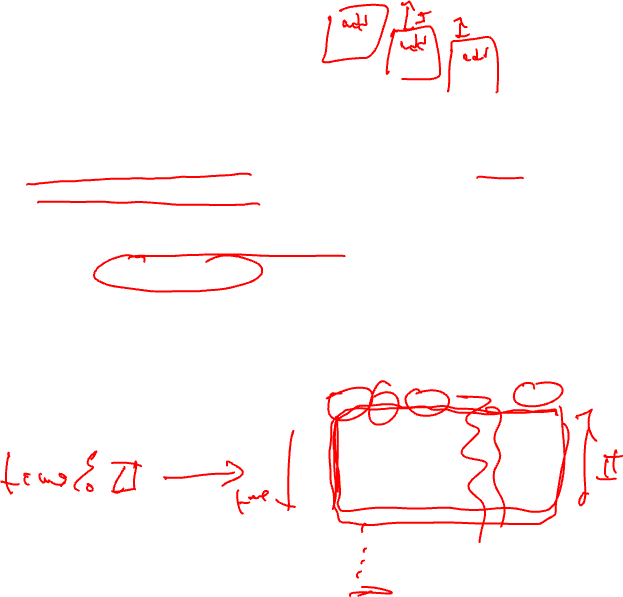 add
add
add
II
time % II
time